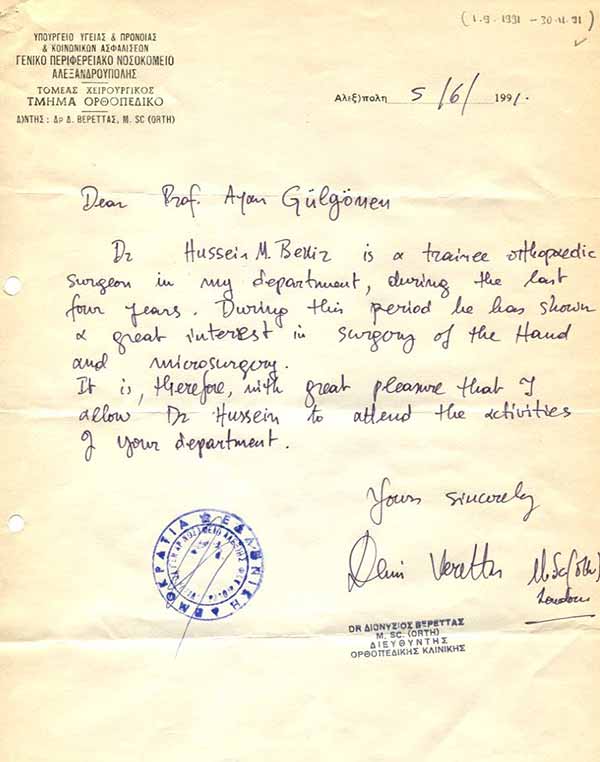 (1-9-1991 - 30-11-91)
ΥΠΟΥΡΓΕΙΟ ΥΓΕΙΑΣ & ΠΡΟΝΟΙΑΣ
& ΚΟΙΝΩΝΙΚΩΝ ΑΣΦΑΛΙΣΕΩΝ
ΓΕΝΙΚΟ ΠΕΡΙΦΕΡΕΙΑΚΟ ΝΟΣΟΚΟΜΕΙΟ
ΑΛΕΞΑΝΔΡΟΥΠΟΛΗΣ
ΤΟΜΕΑΣ ΧΕΙΡΟΥΡΓΙΚΟΣ
ΤΜΗΜΑ ΟΡΘΟΠΕΔΙΚΟ
Δ)ΝΤΗΣ : Δρ Δ. ΒΕΡΕΤΤΑΣ, M. SC (ORTH)
Αλεξ)πολη 5/6/1991.
Dear Prof. Ayan Gülgönen
Dr Hussein M. Bekir is a trainee orthopaedic
surgeon in my department, during the last
four years. During this period he has shown
a great interest in surgery of the Hand
and microsurgery.
It is, therefore, with great pleasure that I
allow Dr Hussein to attend the activities
of your department.
Yours sincerely
ΕΛΛΗΝΙΚΗ ΔΗΜΟΚΡΑΤΙΑ
Denis Verettas M.Sc(Orth)
London
DR ΔΙΟΝΥΣΙΟΣ ΒΕΡΕΤΤΑΣ
M. SC. (ORTH)
ΔΙΕΥΘΥΝΤΗΣ
ΟΡΘΟΠΕΔΙΚΗΣ ΚΛΙΝΙΚΗΣ